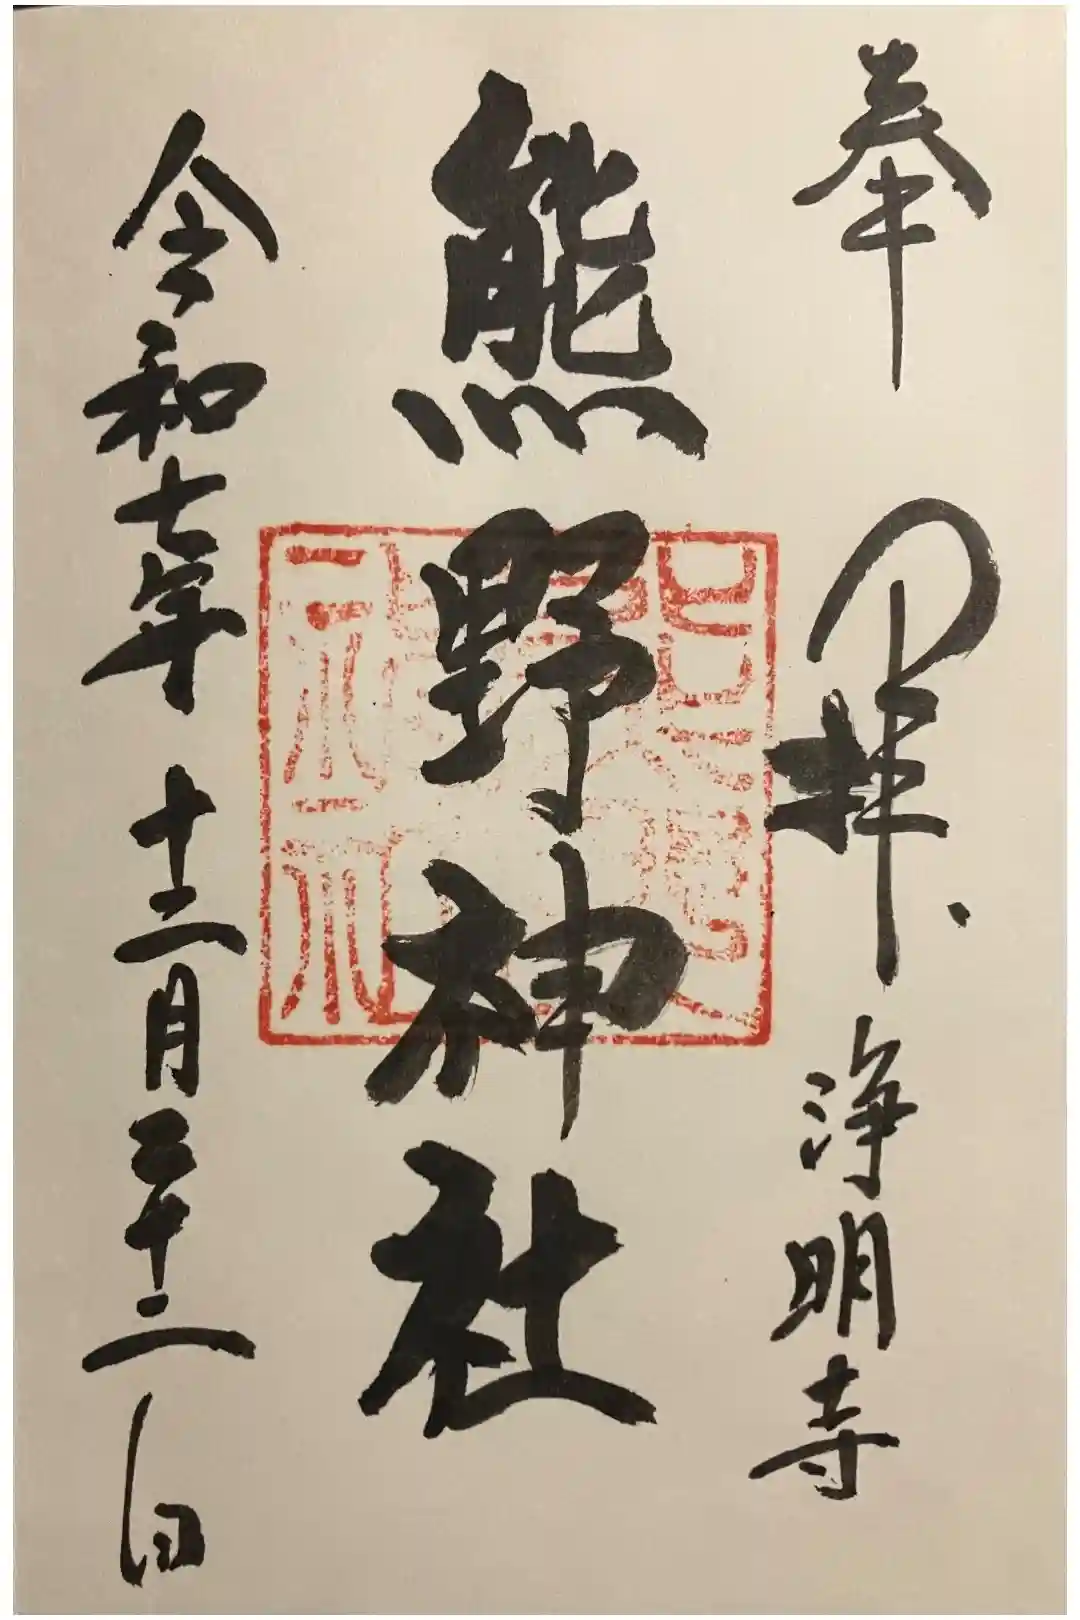 奉拝、浄明寺
熊野神社
令和七年十二月二十二日